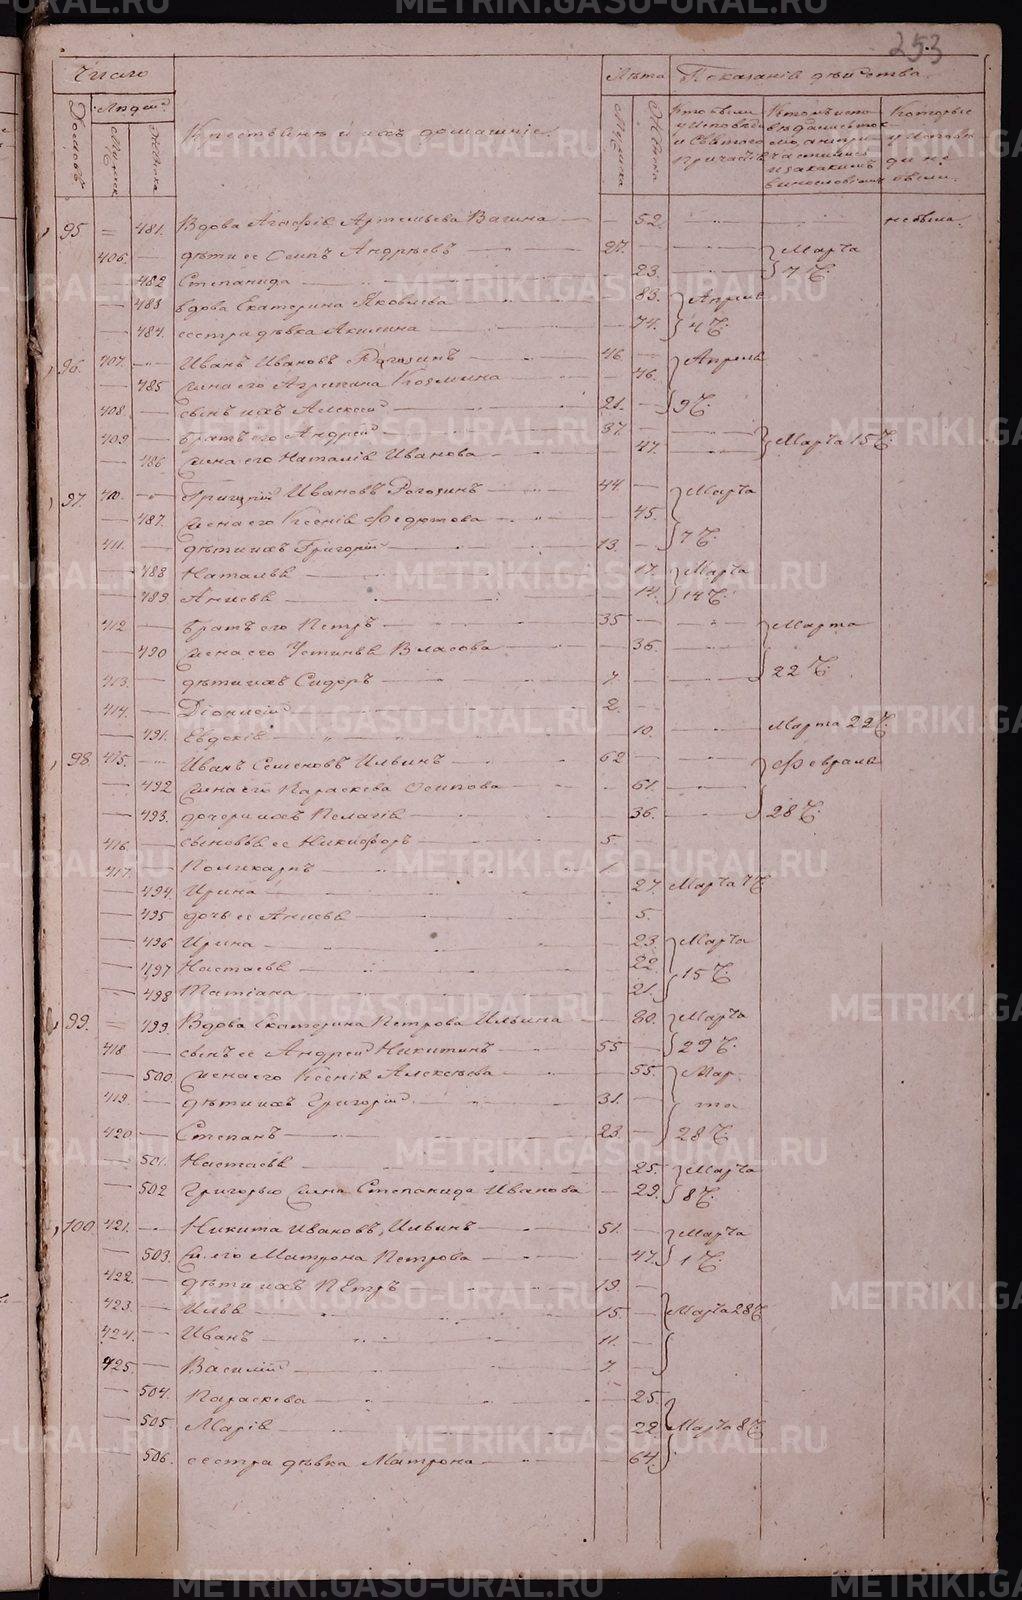 253
Число
Лѣта Показаніе дѣйства.
Домовъ Людей Мужеск Женска
Крестьяне и ихъ домашніе.
Мужеска Женска
Кто были у исповѣди и святаго причастія
Которые у исповѣди не были.
95 481. Вдова Агафія Артемьева Вагина 52. не была.
406. дѣти ее Осипъ Андрѣевъ 27. Марта
482 Степанида 23. 7 Ч.
483 вдова Екатерина Яковлева 83. Апрѣля
484. сестра дѣвка Акилина 74. 4 Ч.
96. 407. Иванъ Ивановъ Рогозинъ 46. Апрѣля
485 жена его Агрипина Козмина 46.
408. сынъ ихъ Алексей 21. 9 Ч.
409 братъ его Андрей 37. Марта 15 Ч.
486 жена его Наталія Иванова 47.
97. 410. Григорій Ивановъ Рогозинъ 44. Марта
487. жена его Ксенія Федотова 45.
411. дѣти ихъ Григорій 13. 7 Ч.
488 Наталья 17. Марта
489. Анисья 14. 14 Ч.
412 братъ его Петръ 35 Марта
490 жена его Устинья Власова 36.
413. дѣти ихъ Сидоръ 7. 22 Ч.
414. Діонисій 2.
491. Евдокія 10. Марта 22 Ч.
98. 415. Иванъ Семеновъ Ильинъ 62 Февраля
492 жена его Параскева Осипова 61.
493. дочери ихъ Пелагія 36. 28 Ч.
416. сыновья ее Никифоръ 5.
417. Поликарпъ 1
494. Ирина 27. Марта 7 Ч.
495 дочь ее Анисья 5.
496 Ирина 23. Марта
497 Настасья 22. 15 Ч.
498 Татіана 21.
99. 499. Вдова Екатерина Петрова Ильина 80. Марта
418. сынъ ее Андрей Никитинъ 55 29 Ч.
500. жена его Ксенія Алексѣева 55. Мар
419. дѣти ихъ Григорій 31. та
420 Степанъ 23. 28 Ч.
501. Настасья 25. Марта
502 Григорью жена Степанида Иванова 29. 8 Ч.
100 421. Никита Ивановъ Ильинъ 51. Марта
503. ж. его Матрона Петрова 47. 1 Ч.
422. дѣти ихъ Петръ 19.
423. Илья 15. Марта 28 Ч.
424. Иванъ 11.
425. Василій 7.
504. Параскева 25.
505. Марія 22. Марта 8 Ч.
506. сестра дѣвка Матрона 64.
METRIKI.GASO-URAL.RU